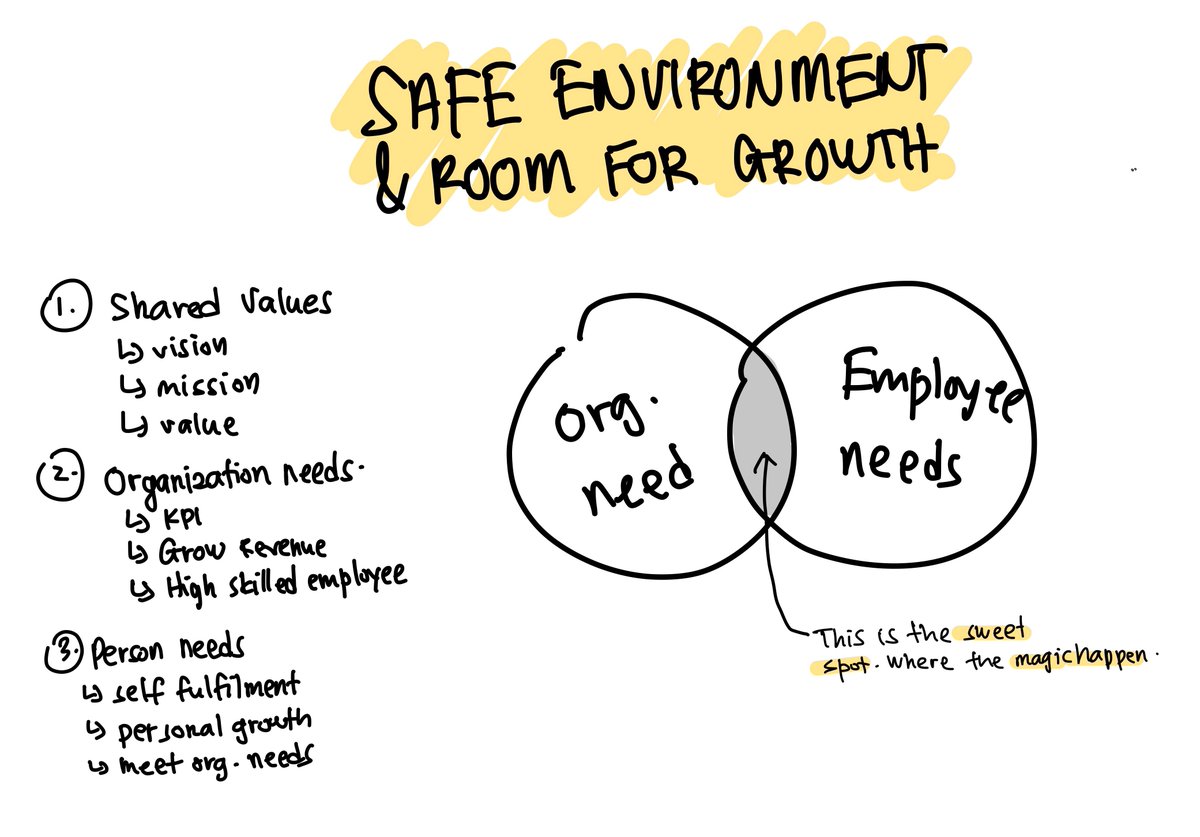 SAFE ENVIRONMENT
& ROOM FOR GROWTH
1. Shared values
↳ vision
↳ mission
↳ value
2. Organization needs.
↳ KPI
↳ Grow Revenue
↳ High skilled employee
3. Person needs
↳ self fulfilment
↳ personal growth
↳ meet org. needs
org.
need
Employee
needs
This is the sweet
spot. where the magic happen.